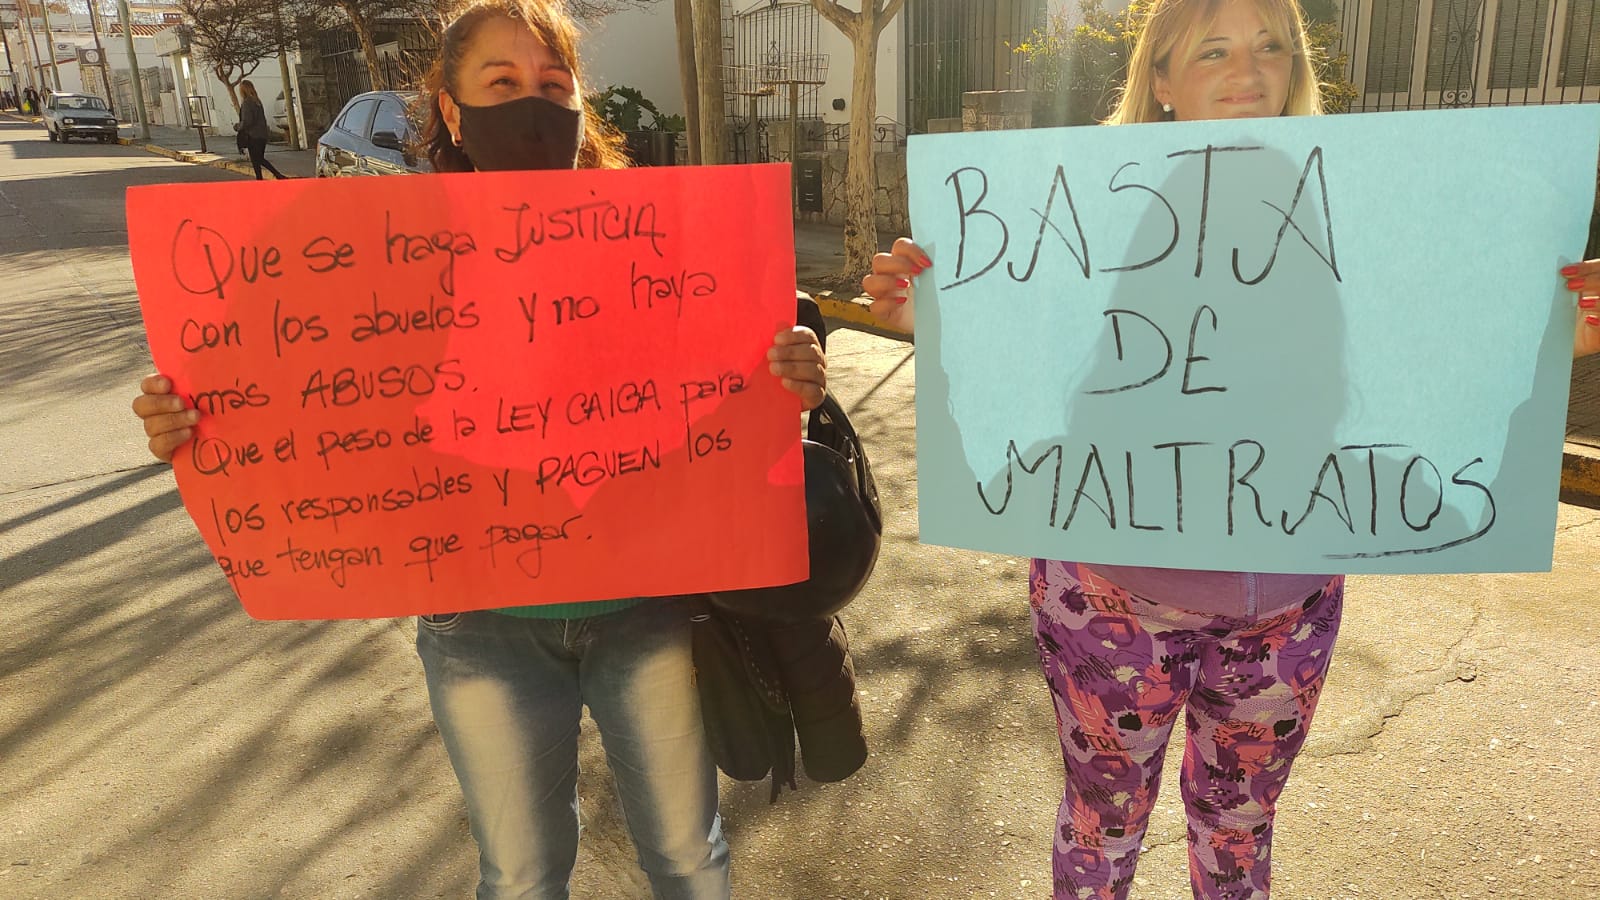 Que se haga JUSTICIA
con los abuelos y no haya
más ABUSOS.
Que el peso de la LEY CAIGA para
los responsables y PAGUEN los
que tengan que pagar.
BASTA
DE
MALTRATOS